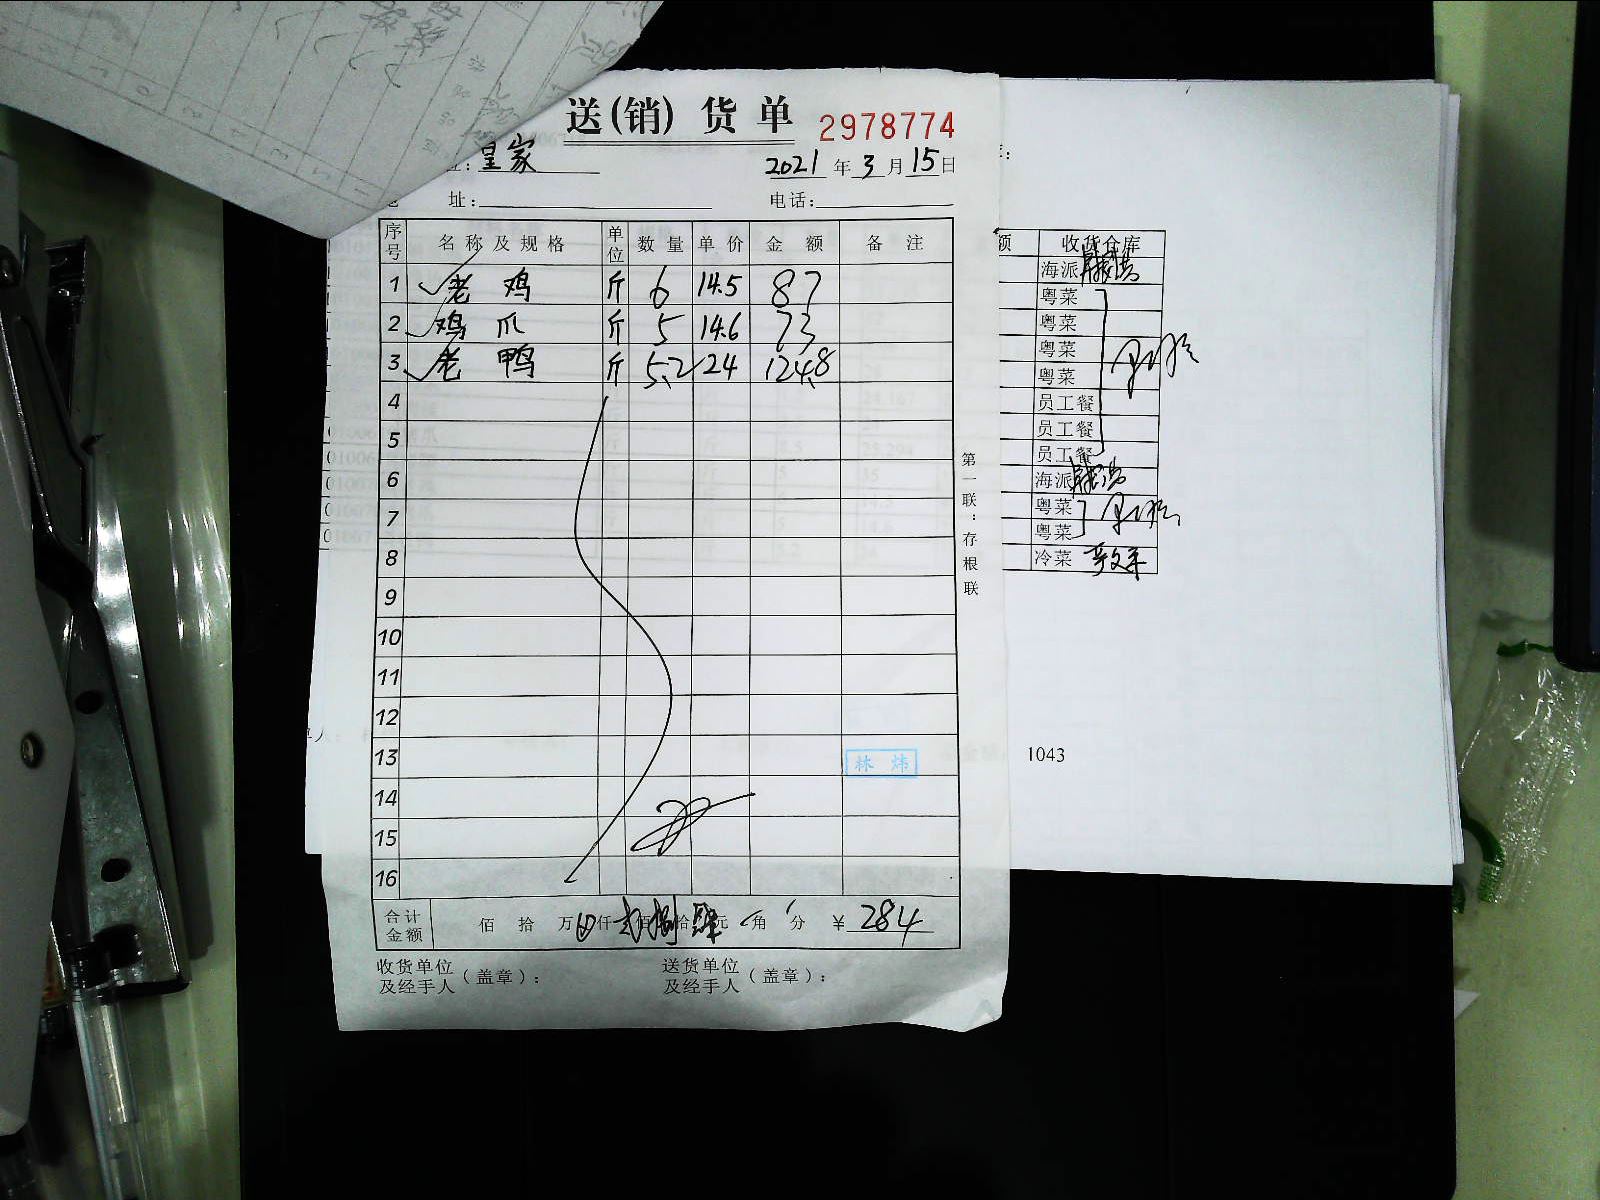 送(销)货单 2978774
皇家
2021年3月15日
址: 电话:
序号 名称及规格 单位 数量 单价 金额 备注
1 老鸡 斤 6 14.5 87
2 鸡爪 斤 5 14.6 73
3 老鸭 斤 5.2 24 124.8
4
5
6
7
8
9
10
11
12
13 林炜
14
15
16
合计金额 佰拾万仟佰拾元角分 ¥284
收货单位及经手人(盖章): 送货单位及经手人(盖章):
第一联:存根联
额 收货仓库
海派
粤菜
粤菜
粤菜
粤菜
员工餐
员工餐
员工餐
海派
粤菜
粤菜
冷菜
1043